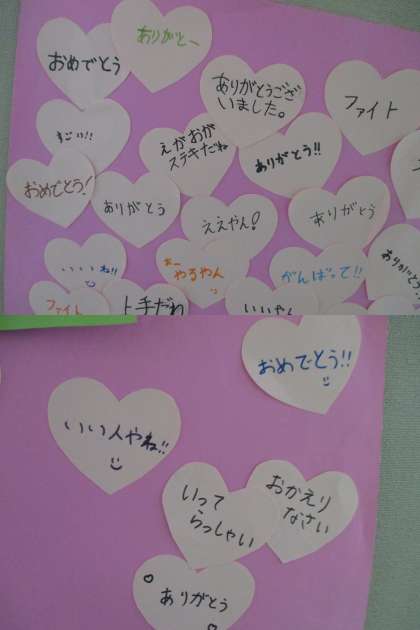 ありがとー
おめでとう
ありがとうござ
いました。
ファイト
すごい!!
えがおが
ステキだね
ありがとう!!
おめでとう!
ありがとう
ええやん!
ありがとう
いいね!!
おー
やるやん
がんばって!!
ありがとう!
ファイト
上手だね
いいやん
おめでとう!!
いい人やね!!
いって
らっしゃい
おかえり
なさい
ありがとう